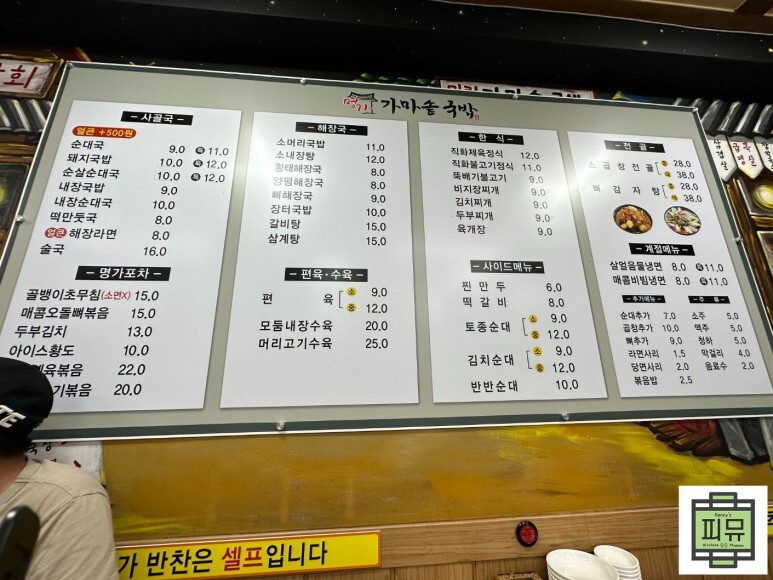 명가 가마솥 국밥
- 사골국 -
얼큰 +500원
순대국 9,0 특 11,0
돼지국밥 10,0 특 12,0
순살순대국 10,0 특 12,0
내장국밥 9,0
내장순대국 10,0
떡만둣국 8,0
얼큰 해장라면 8,0
술국 16,0
- 명가포차 -
골뱅이초무침(소면X) 15,0
매콤오돌뼈볶음 15,0
두부김치 13,0
아이스황도 10,0
육볶음 22,0
기볶음 20,0
- 해장국 -
소머리국밥 11,0
소내장탕 12,0
황태해장국 8,0
양평해장국 9,0
뼈해장국 9,0
장터국밥 10,0
갈비탕 15,0
삼계탕 15,0
- 편육·수육 -
편 육 소 9,0
중 12,0
모둠내장수육 20,0
머리고기수육 25,0
- 한 식 -
직화제육정식 12,0
직화불고기정식 11,0
뚝배기불고기 9,0
비지장찌개 9,0
김치찌개 9,0
두부찌개 9,0
육개장 9,0
- 사이드메뉴 -
찐만두 6,0
떡갈비 8,0
토종순대 소 9,0
중 12,0
김치순대 소 9,0
중 12,0
반반순대 10,0
- 전 골 -
소곱창전골 중 28,0
대 38,0
뼈감자탕 중 28,0
대 38,0
- 계절메뉴 -
살얼음물냉면 8,0 특 11,0
매콤비빔냉면 8,0 특 11,0
- 추가메뉴 -
순대추가 7,0
곱창추가 10,0
뼈추가 9,0
라면사리 1,5
당면사리 2,0
볶음밥 2,5
- 주 류 -
소주 5,0
맥주 5,0
청하 5,0
막걸리 4,0
음료수 2,0
가 반찬은 셀프입니다
Kenny's
피뮤